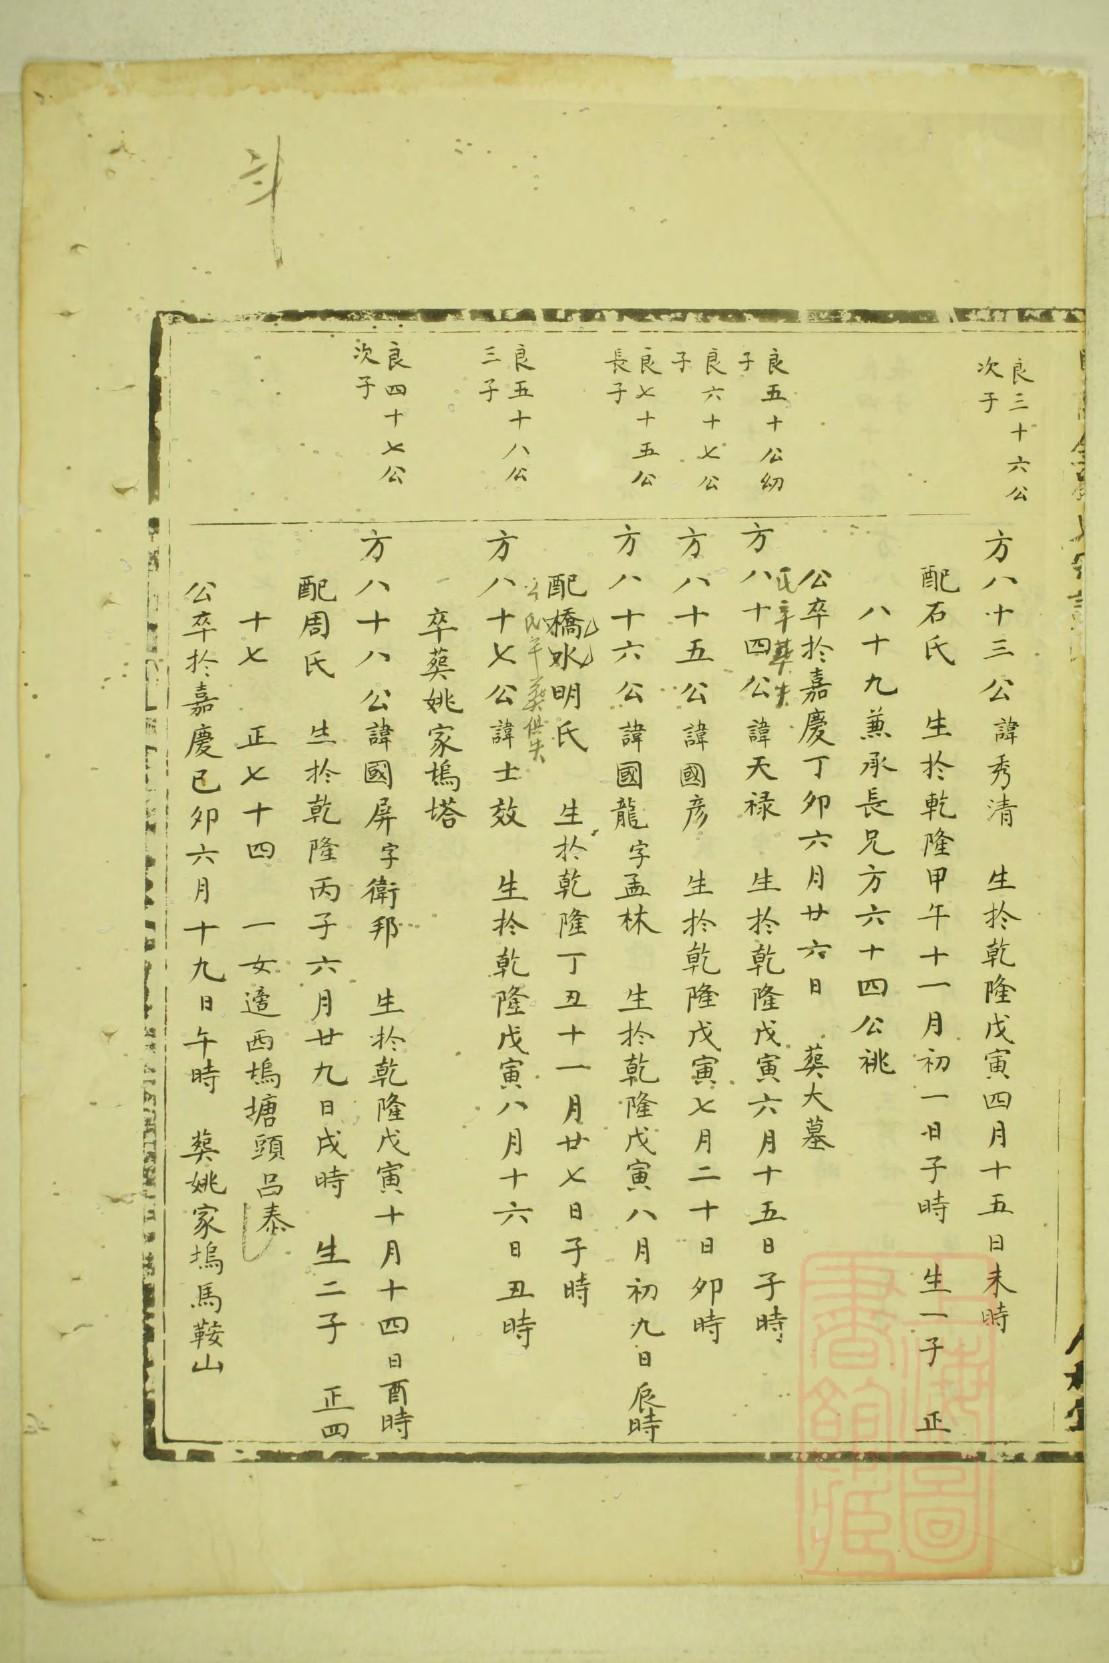 良三十六公
次子
方八十三公諱秀清 生於乾隆戊寅四月十五日未時
配石氏 生於乾隆甲午十一月初一日子時 生一子 正
八十九兼承長兄方六十四公祧
公卒於嘉慶丁卯六月廿六日 葬大墓
氏卒葬失
良五十公幼
子
方八十四公諱天祿 生於乾隆戊寅六月十五日子時
良六十七公
子
方八十五公諱國彥 生於乾隆戊寅七月二十日卯時
良七十五公
長子
方八十六公諱國龍字孟林 生於乾隆戊寅八月初九日辰時
配橋水明氏 生於乾隆丁丑十一月廿七日子時
公氏卒葬俱失
良五十八公
三子
方八十七公諱士效 生於乾隆戊寅八月十六日丑時
卒葬姚家塢塔
良四十七公
次子
方八十八公諱國屏字衛邦 生於乾隆戊寅十月十四日酉時
配周氏 生於乾隆丙子六月廿九日戌時 生二子 正四
十七 正七十四 一女適西塢塘頭呂泰
公卒於嘉慶已卯六月十九日午時 葬姚家塢馬鞍山
上海圖
書館藏